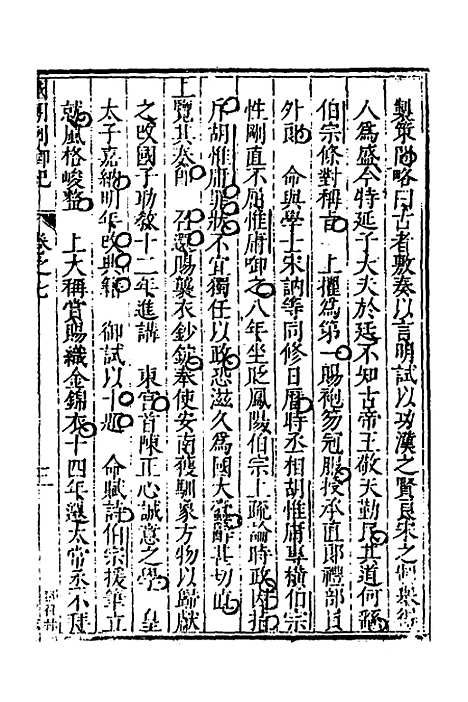 製策問略曰古者敷奏以言明試以功漢之賢良宋之制舉
人為盛今特延子大夫於廷不知古帝王敬天勤民其道何繇
伯宗條對稱旨 上擢為第一賜袍笏冠服授承直郎禮部員
外郎 命與學士宋訥等同修日曆時丞相胡惟庸專橫伯宗
性剛直不屈惟庸啣之八年坐貶鳳陽伯宗上疏論時政因指
斥胡惟庸罪狀不宜獨任以政恐滋久為國大蠹辭甚切直
上覽其奏即 召還賜襲衣鈔錠奉使安南獲馴象方物以歸獻
之改國子助教十二年進講 東宮首陳正心誠意之學 皇
太子嘉納明年改典籍 御試以十題 命賦詩伯宗援筆立
就風格峻整 上大稱賞賜織金錦衣十四年遷太常丞不拜
國朝列卿記 卷之七